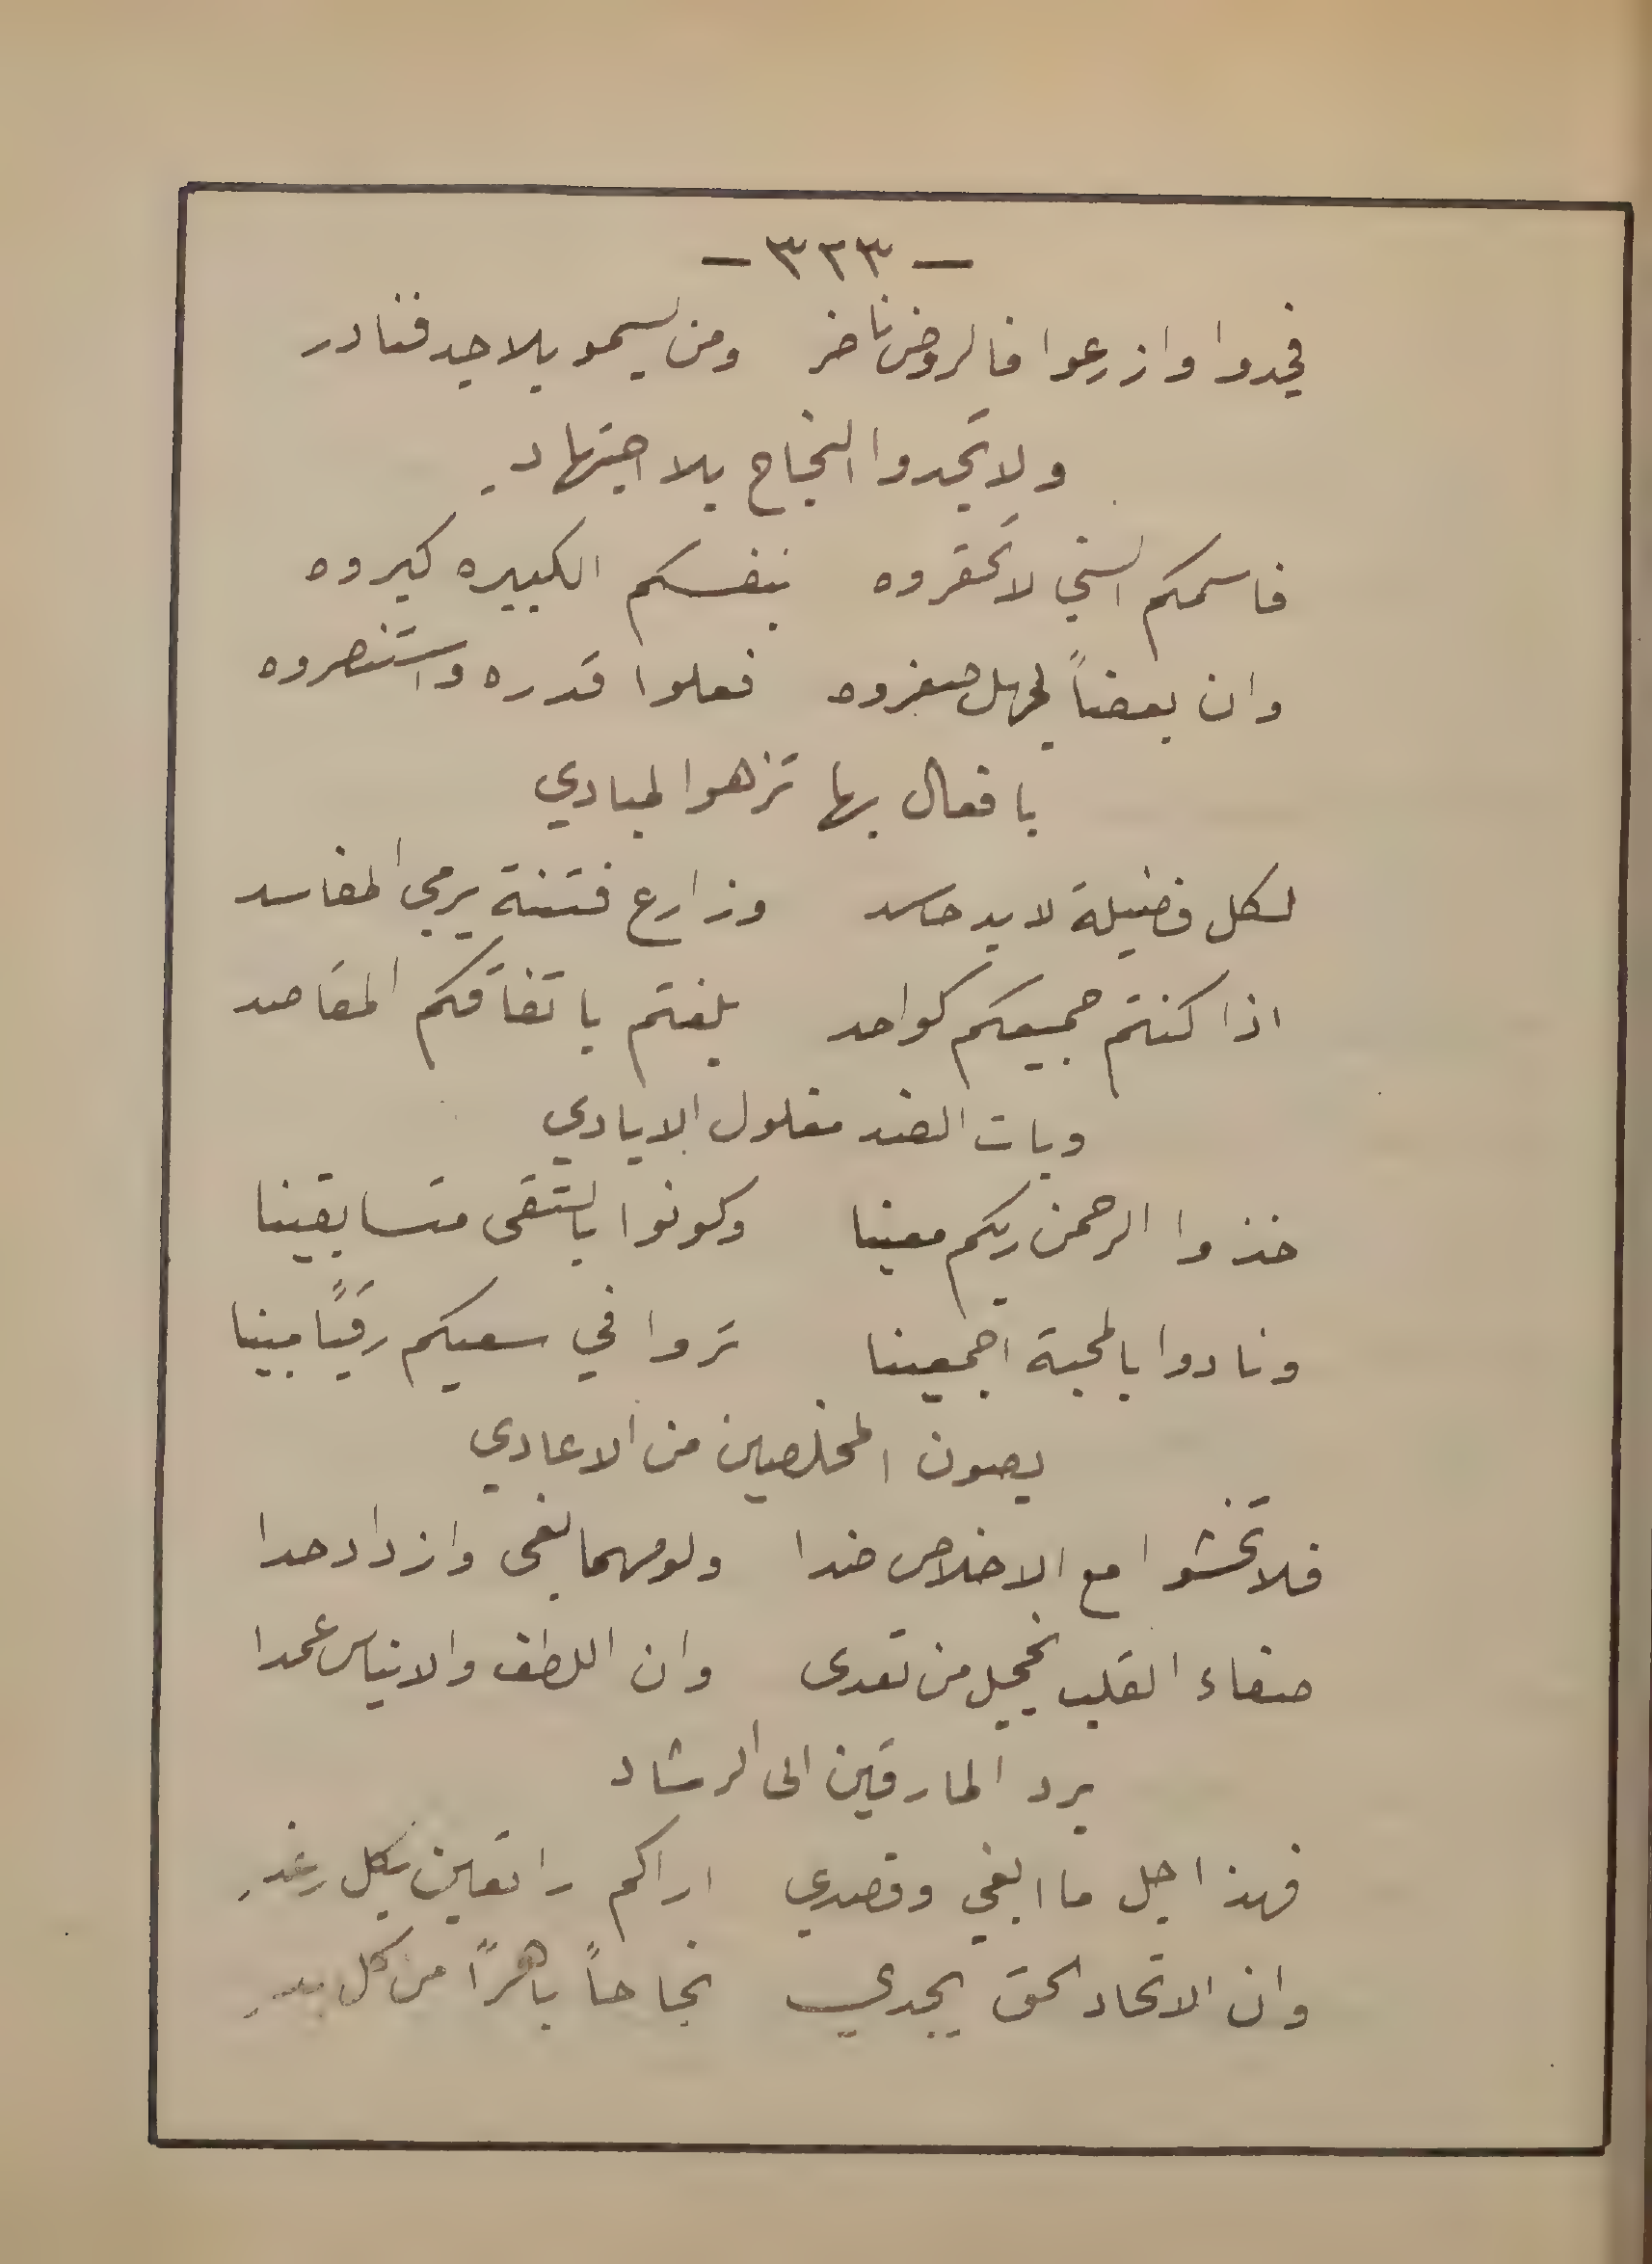 - ٣٢٣ -
فجدوا وازرعوا فالروض ناضر ومن يسمو بلا جد فنادر
ولا تجدوا النجاح بلا اجتهادِ
فاسمكم السني لا تحقروه بنفسكم الكبيره كبروه
وان بعضاً لجهل صغروه فعلوا قدره واستنصروه
بافعال بها تزهوا لمبادي
لكل فضيلة لا بد حاسد وزارع فتنة يرمي المفاسد
اذا كنتم جميعكم كواحد بلغتم باتفاقكم المقاصد
وبات الضد مغلول الايادي
خذوا الرحمن ربكم معينا وكونوا بالتقى متسابقينا
ونادوا بالمحبة اجمعينا تروا في سعيكم رقيًا مبينا
يصون المخلصين من الاعادي
فلا تخشوا مع الاخلاص ضدا ولو مهما بغى وازداد حدا
صفاء القلب يخجل من تعدى وان اللطف والايناس عمدا
يرد المارقين الى الرشاد
فهذا جل ما ابغي وقصدي اراكم راتعين بكل رغدِ
وان الاتحاد الحق يجدي نجاحاً باهرًا من كل